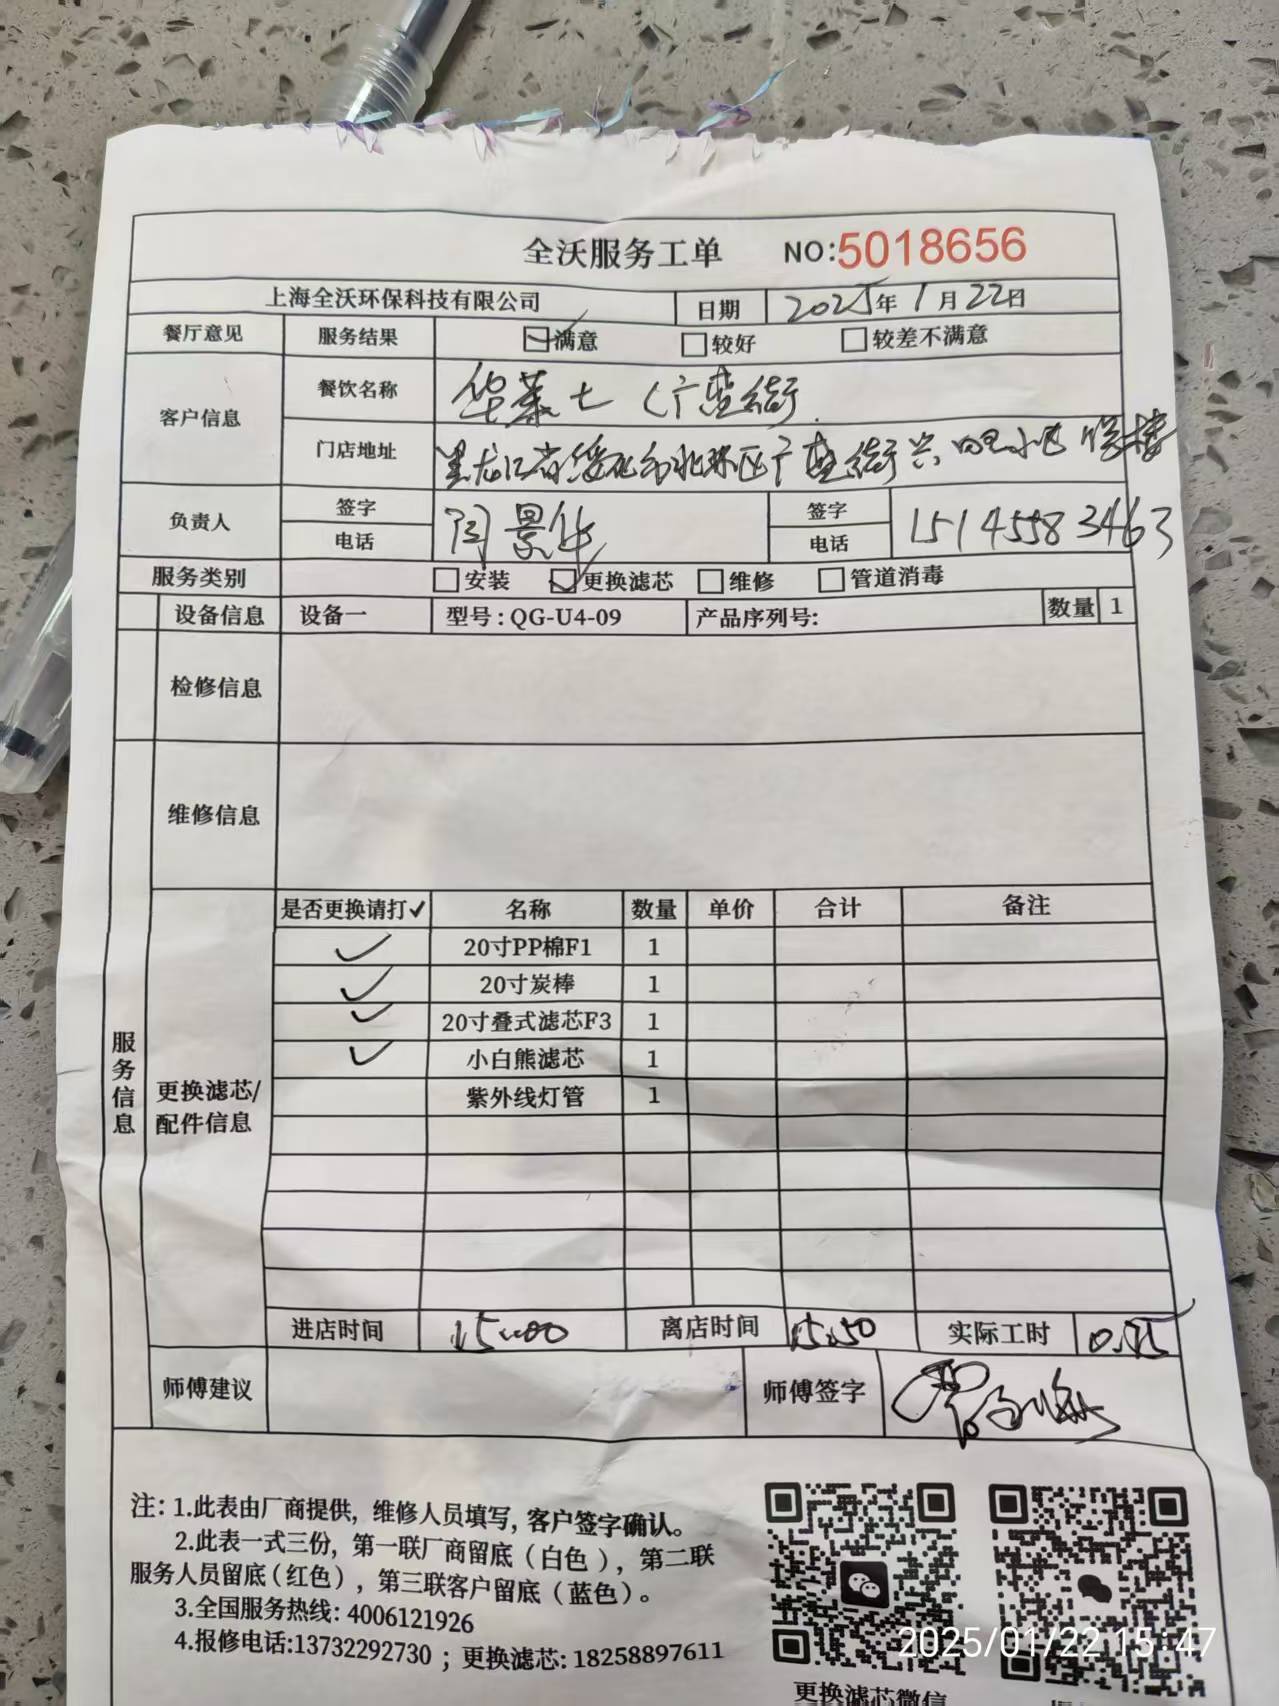 全沃服务工单 NO:5018656
上海全沃环保科技有限公司 日期 2025年1月22日
餐厅意见 服务结果 满意 较好 较差不满意
客户信息 餐饮名称 华莱士(广盛街
门店地址 黑龙江省绥化市北林区广盛街兴 小区 楼
负责人 签字 电话 闫景华 签字 电话 15145583463
服务类别 安装 更换滤芯 维修 管道消毒
设备信息 设备一 型号:QG-U4-09 产品序列号: 数量 1
检修信息
维修信息
服务信息
更换滤芯/配件信息
是否更换请打✓ 名称 数量 单价 合计 备注
✓ 20寸PP棉F1 1
✓ 20寸炭棒 1
✓ 20寸叠式滤芯F3 1
✓ 小白熊滤芯 1
紫外线灯管 1
进店时间 15:00 离店时间 15:50 实际工时
师傅建议 师傅签字
注:1.此表由厂商提供,维修人员填写,客户签字确认。
2.此表一式三份,第一联厂商留底(白色),第二联
服务人员留底(红色),第三联客户留底(蓝色)。
3.全国服务热线:4006121926
4.报修电话:13732292730;更换滤芯:18258897611
更换滤芯微信
2025/01/22 15:47